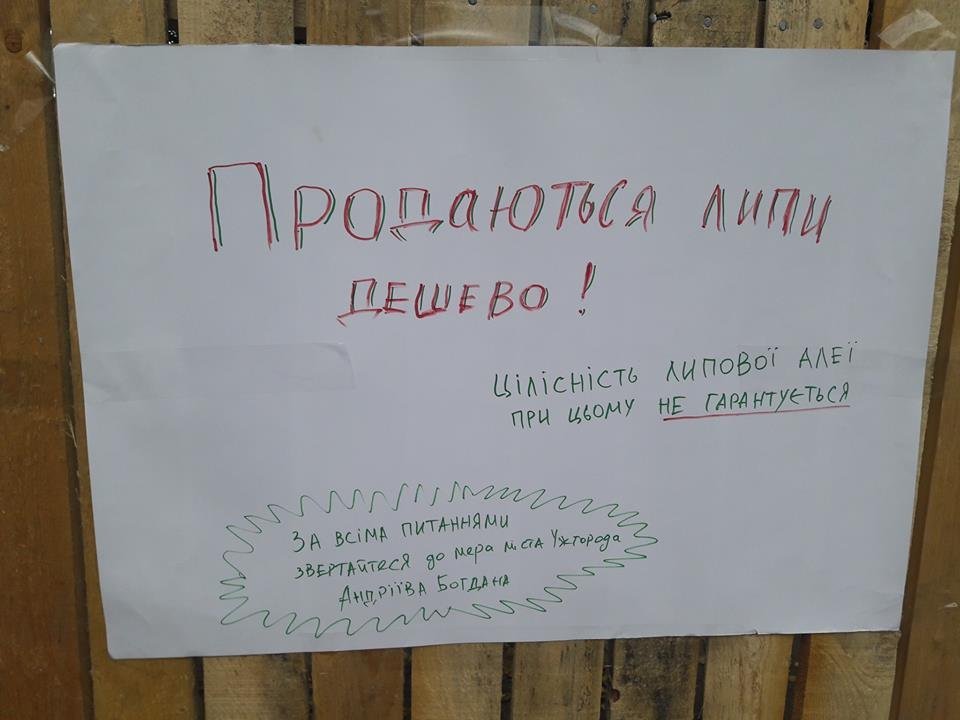 Продаються липи
дешево!
цілісність липової алеї
при цьому не гарантується
За всіма питаннями
звертайтеся до мера міста Ужгорода
Андріїва Богдана